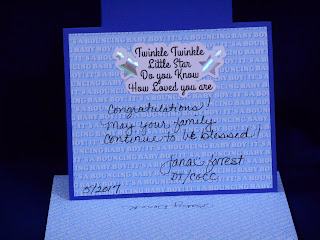 Twinkle Twinkle
Little Star
Do you Know
How Loved you are
Congratulations!
May your family
continue to be blessed!
Janac Forrest
DT/COCC
5/2017
IT'S A BOUNCING BABY BOY!